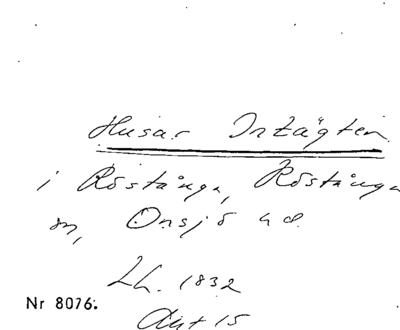 Husar Intägten
i Röstånga, Röstånga
sn, Onsjö hd.
LL. 1832
Nr 8076.
Akt 15